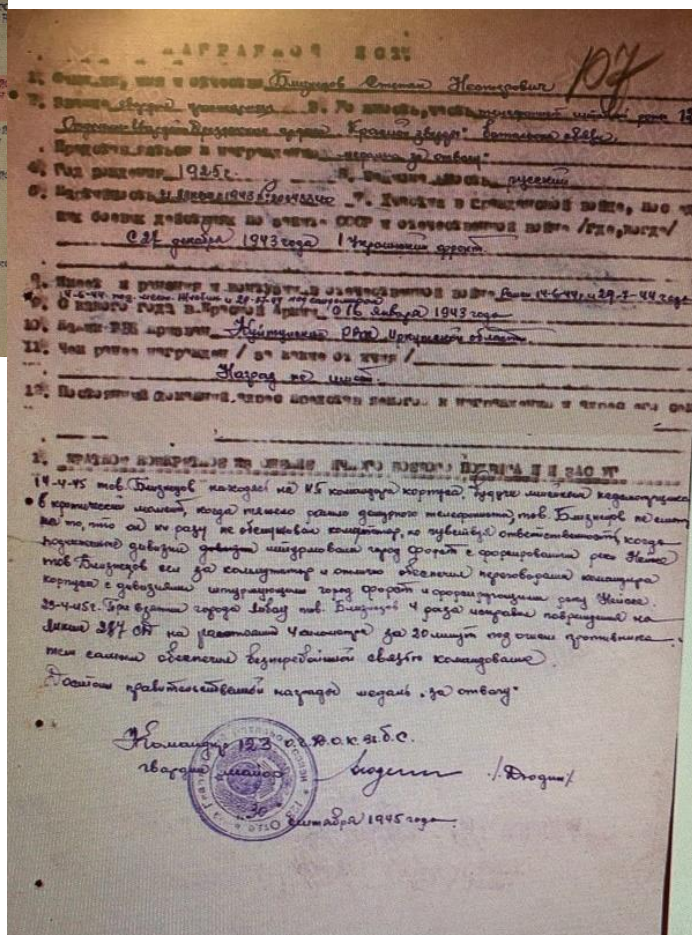 НАГРАДНОЙ ЛИСТ
107
1. Фамилия, имя и отчество Близнецов Степан
2. Звание гвардии 3. Должность, часть телефонной роты 123
Отдельн. Гвардей ордена "Красной звезды" батальона связи
Представляется к награждению медаль "за отвагу"
4. Год рождения 1925г. 5. Национальность русский
6. Партийность 7. Участие в гражданской войне, последующих
боевых действиях по защите СССР и отечественной войне /где, когда/
С 27 декабря 1943 года 1 Украинский фронт.
8. Имеет ли ранения и контузии в отечественной войне 14-6-44 и 29-7-44 года
9. С какого года в Красной Армии с 16 января 1943 года
10. Каким РВК призван Куйтунским РВК Иркутской области
11. Чем ранее награжден / за какие отличия /
Наград не имеет.
12. Постоянный домашний адрес к награждению и адрес его семьи
1. КРАТКОЕ КОНКРЕТНОЕ ИЗЛОЖЕНИЕ ЛИЧНОГО БОЕВОГО ПОДВИГА ИЛИ ЗАСЛУГ
14-4-45 тов. Близнецов находясь на командира корпуса, будучи линейным надсмотрщиком
в критический момент, когда тяжело ранило дежурного телефониста, тов. Близнецов не смотря
на то, что он ни разу не обслуживал коммутатор, но чувствуя ответственность, когда
дивизии штурмовали город форст с форсированием реки Нейсе
тов Близнецов сел за коммутатор и отлично обеспечил переговорами командира
корпуса с дивизиями штурмующими город форст и форсирующими реку Нейсе.
29-4-45г. При взятии города тов. Близнецов 4 раза исправил повреждения на
линии на расстоянии 4 километра за 20 минут под огнем противника
тем самым обеспечил бесперебойной связью командование.
Достоин правительственной награды медаль "за отвагу"
Командир 123 о.г.
гвардии майор /Дюдин/
"30" сентября 1945 года.